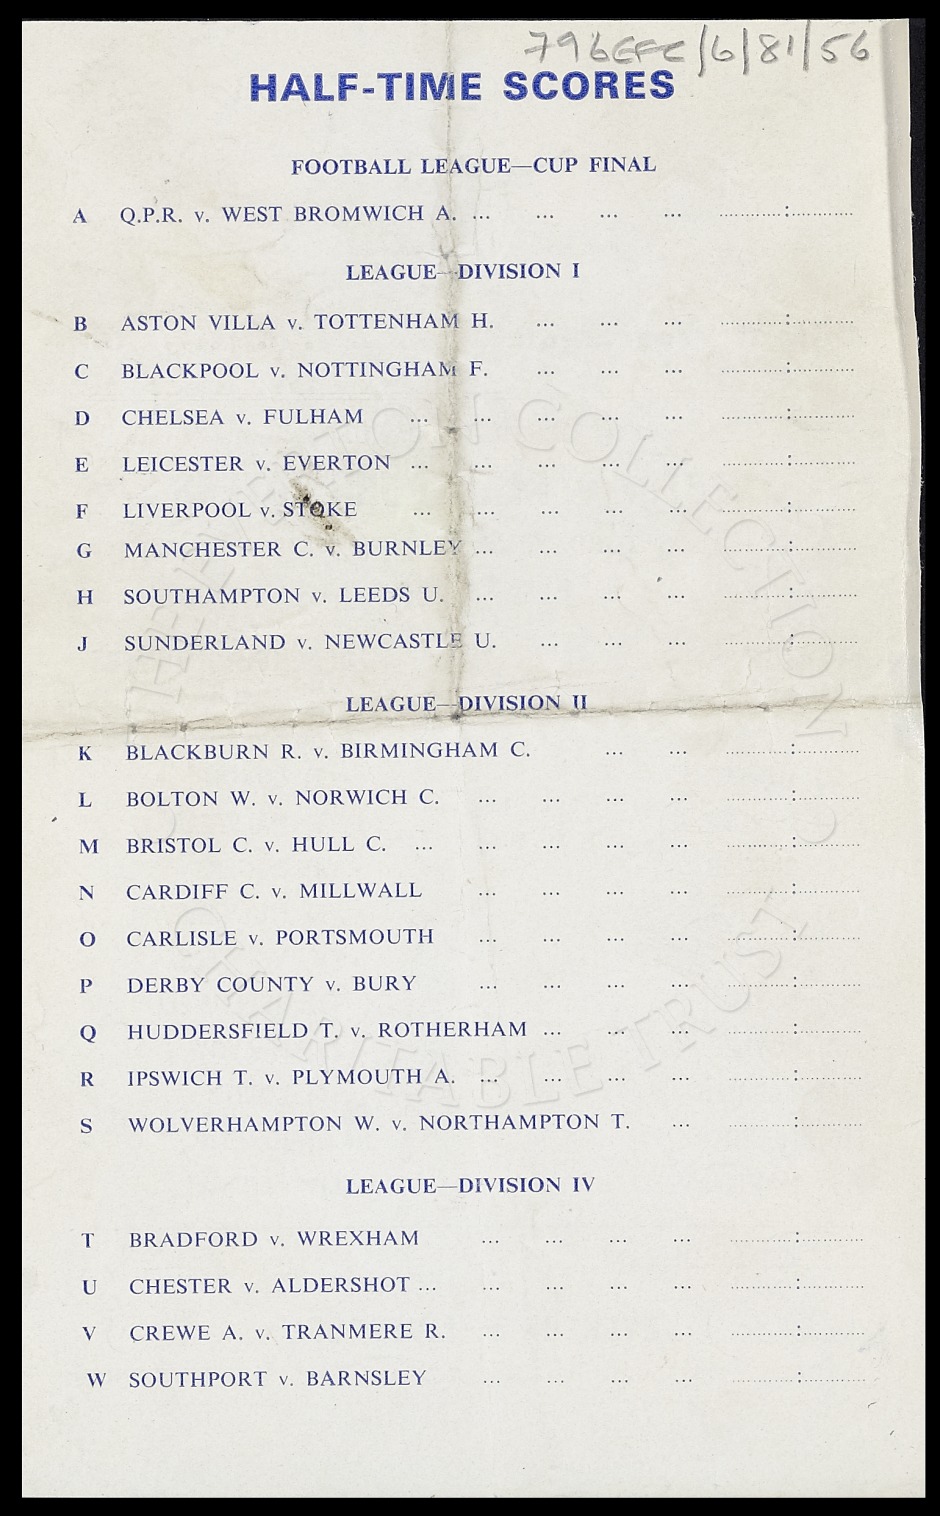 796EFC/6/81/56
HALF-TIME SCORES
FOOTBALL LEAGUE—CUP FINAL
A Q.P.R. v. WEST BROMWICH A. ... ... ... ... ............:............
LEAGUE—DIVISION I
B ASTON VILLA v. TOTTENHAM H. ... ... ... ............:............
C BLACKPOOL v. NOTTINGHAM F. ... ... ... ............:............
D CHELSEA v. FULHAM ... ... ... ... ... ............:............
E LEICESTER v. EVERTON ... ... ... ... ... ............:............
F LIVERPOOL v. STOKE ... ... ... ... ... ............:............
G MANCHESTER C. v. BURNLEY ... ... ... ... ............:............
H SOUTHAMPTON v. LEEDS U. ... ... ... ... ............:............
J SUNDERLAND v. NEWCASTLE U. ... ... ... ............:............
LEAGUE—DIVISION II
K BLACKBURN R. v. BIRMINGHAM C. ... ... ............:............
L BOLTON W. v. NORWICH C. ... ... ... ... ............:............
M BRISTOL C. v. HULL C. ... ... ... ... ... ............:............
N CARDIFF C. v. MILLWALL ... ... ... ... ............:............
O CARLISLE v. PORTSMOUTH ... ... ... ... ............:............
P DERBY COUNTY v. BURY ... ... ... ... ............:............
Q HUDDERSFIELD T. v. ROTHERHAM ... ... ... ............:............
R IPSWICH T. v. PLYMOUTH A. ... ... ... ... ............:............
S WOLVERHAMPTON W. v. NORTHAMPTON T. ... ............:............
LEAGUE—DIVISION IV
T BRADFORD v. WREXHAM ... ... ... ... ............:............
U CHESTER v. ALDERSHOT ... ... ... ... ... ............:............
V CREWE A. v. TRANMERE R. ... ... ... ... ............:............
W SOUTHPORT v. BARNSLEY ... ... ... ... ............:............
THE EVERTON COLLECTION
CHARITABLE TRUST